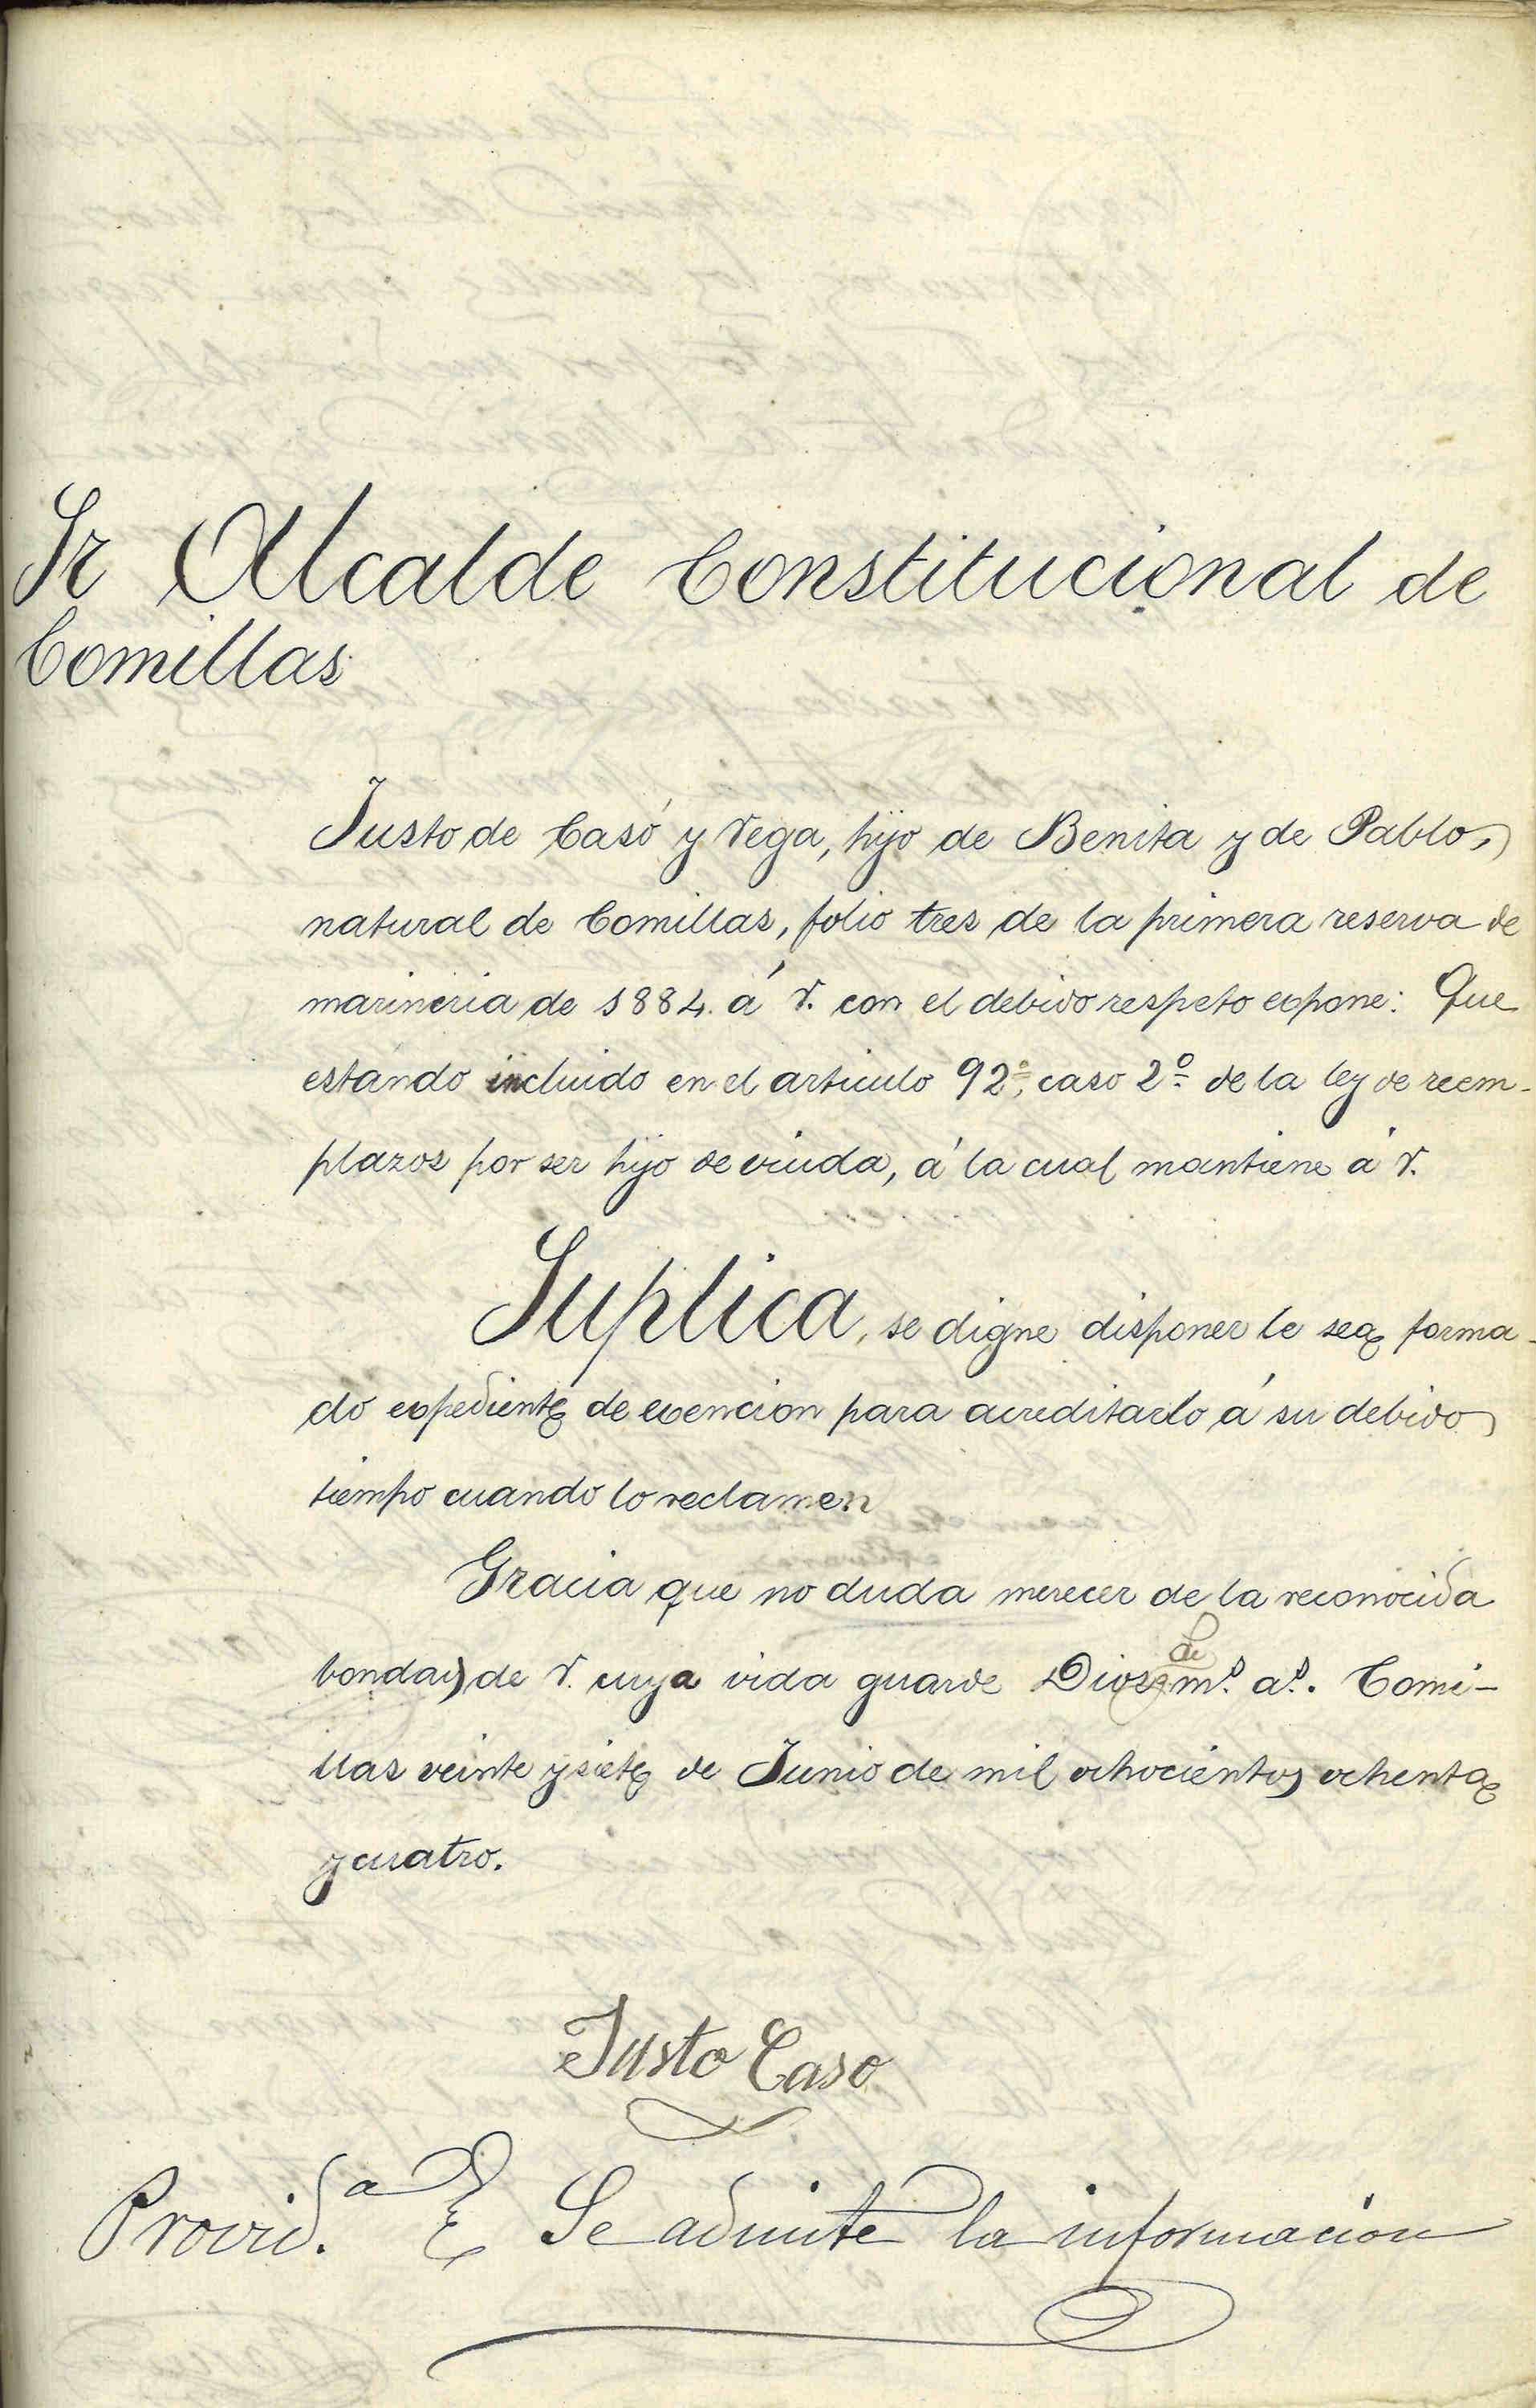 Sr Alcalde Constitucional de
Comillas
Justo de Casó y Vega, hijo de Benita y de Pablo,
natural de Comillas, folio tres de la primera reserva de
marineria de 1884. á V. con el debido respeto expone: Que
estando incluido en el articulo 92º, caso 2º de la ley de reem-
plazos por ser hijo de viuda, á la cual mantiene á V.
Suplica, se digne disponer le sea forma-
do expediente de exencion para acreditarlo á su debido
tiempo cuando lo reclamen
Gracia que no duda merecer de la reconocida
bondad de V. cuya vida guarde Dios m.s a.s. Comi-
llas veinte y siete de Junio de mil ochocientos ochenta
y cuatro.
Justo Caso
Provid.a Se admite la informacion